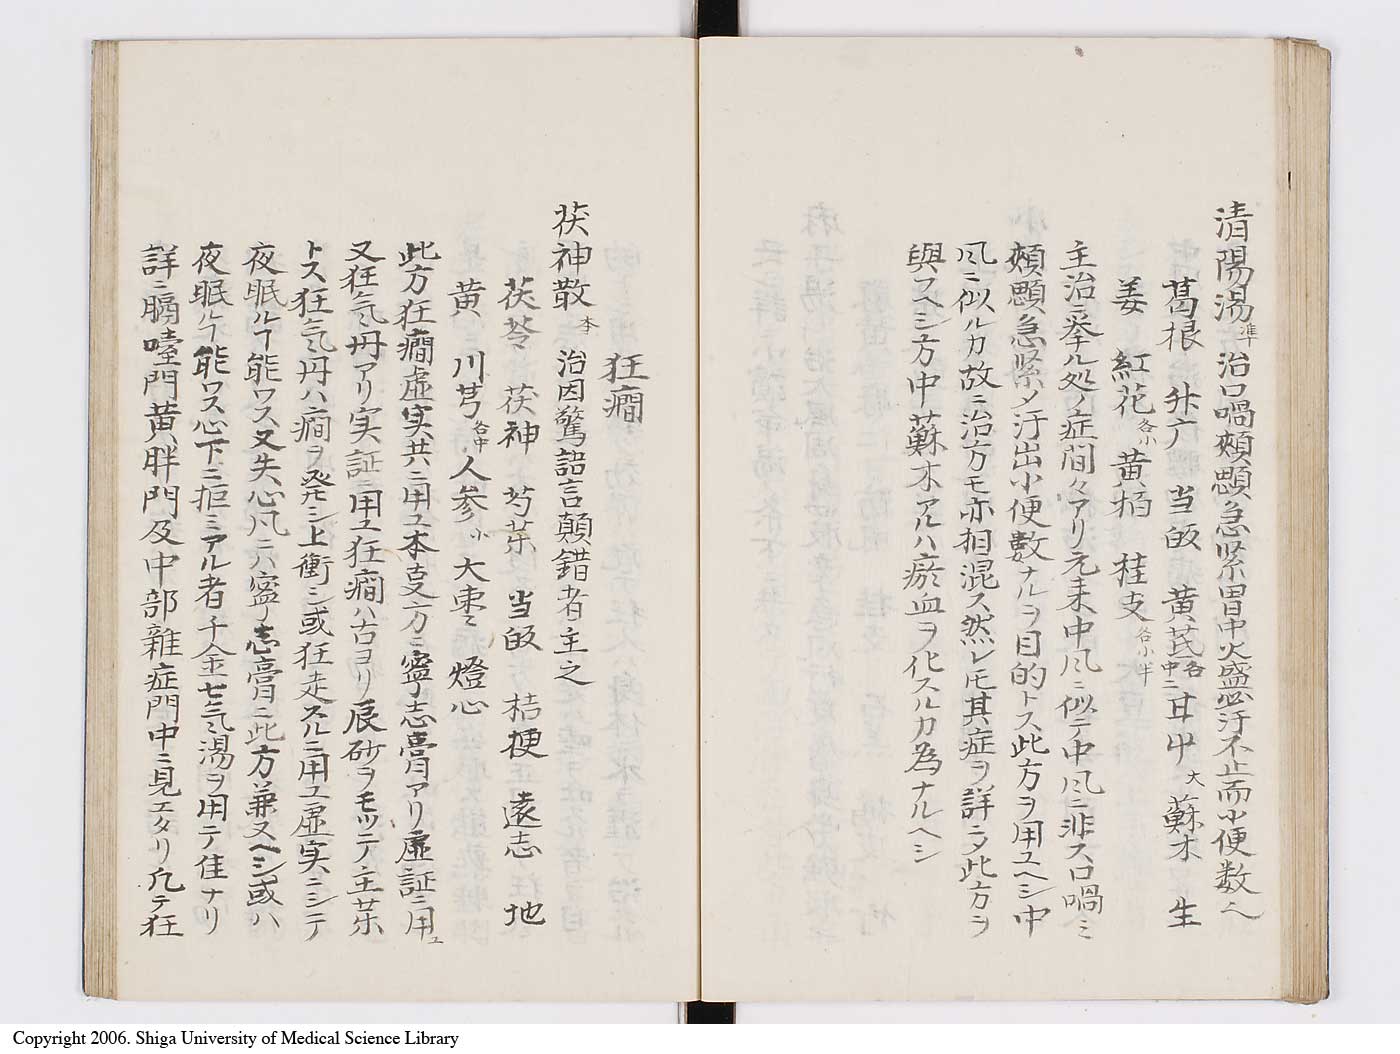 清陽湯 準 治口喎頰顋急紧胃中火盛必汗不止而小便数
葛根 升广 当皈 黄芪各中二 甘艸大 蘇木 生
姜 紅花各小 黄栢 桂支各小半
主治挙ル処ノ症間々アリ元来中凬ニ似テ中凬ニ非ス口喎ミ
頰顋急紧メ汗出小便數ナルヲ目的トス此方ヲ用ユヘシ中
凬ニ似ルカ故ニ治方モ亦相混ス然レモ其症ヲ詳ニタ此方ヲ
與フヘシ方中蘇木アルハ瘀血ヲ化スルカ為ナルヘシ
狂癇
茯神散 本 治因驚語言顛錯者主之
茯苓 茯神 芍茱 当皈 桔梗 遠志 地
黄 川芎各中 人参小 大枣 燈心
此方狂癇虚実共ニ用ユ本支方ニ寧志膏アリ虚証ニ用ユ
又狂氣丹アリ実証ニ用ユ狂癇ハ古ヨリ辰砂ヲモツテ主茱
トス狂氣丹ハ癇ヲ発シ上衝シ或狂走スルニ用ユ虚実ニシテ
夜眠ルヿ能ワス又失心凬ニハ寧志膏ニ此方兼又ヘシ或ハ
夜眠ルヿ能ワス心下ニ拒ミアル者千金七氣湯ヲ用テ佳ナリ
詳ニ膈噎門黄胖門及中部雜症門中ニ見エタリ凢テ狂
Copyright 2006. Shiga University of Medical Science Library